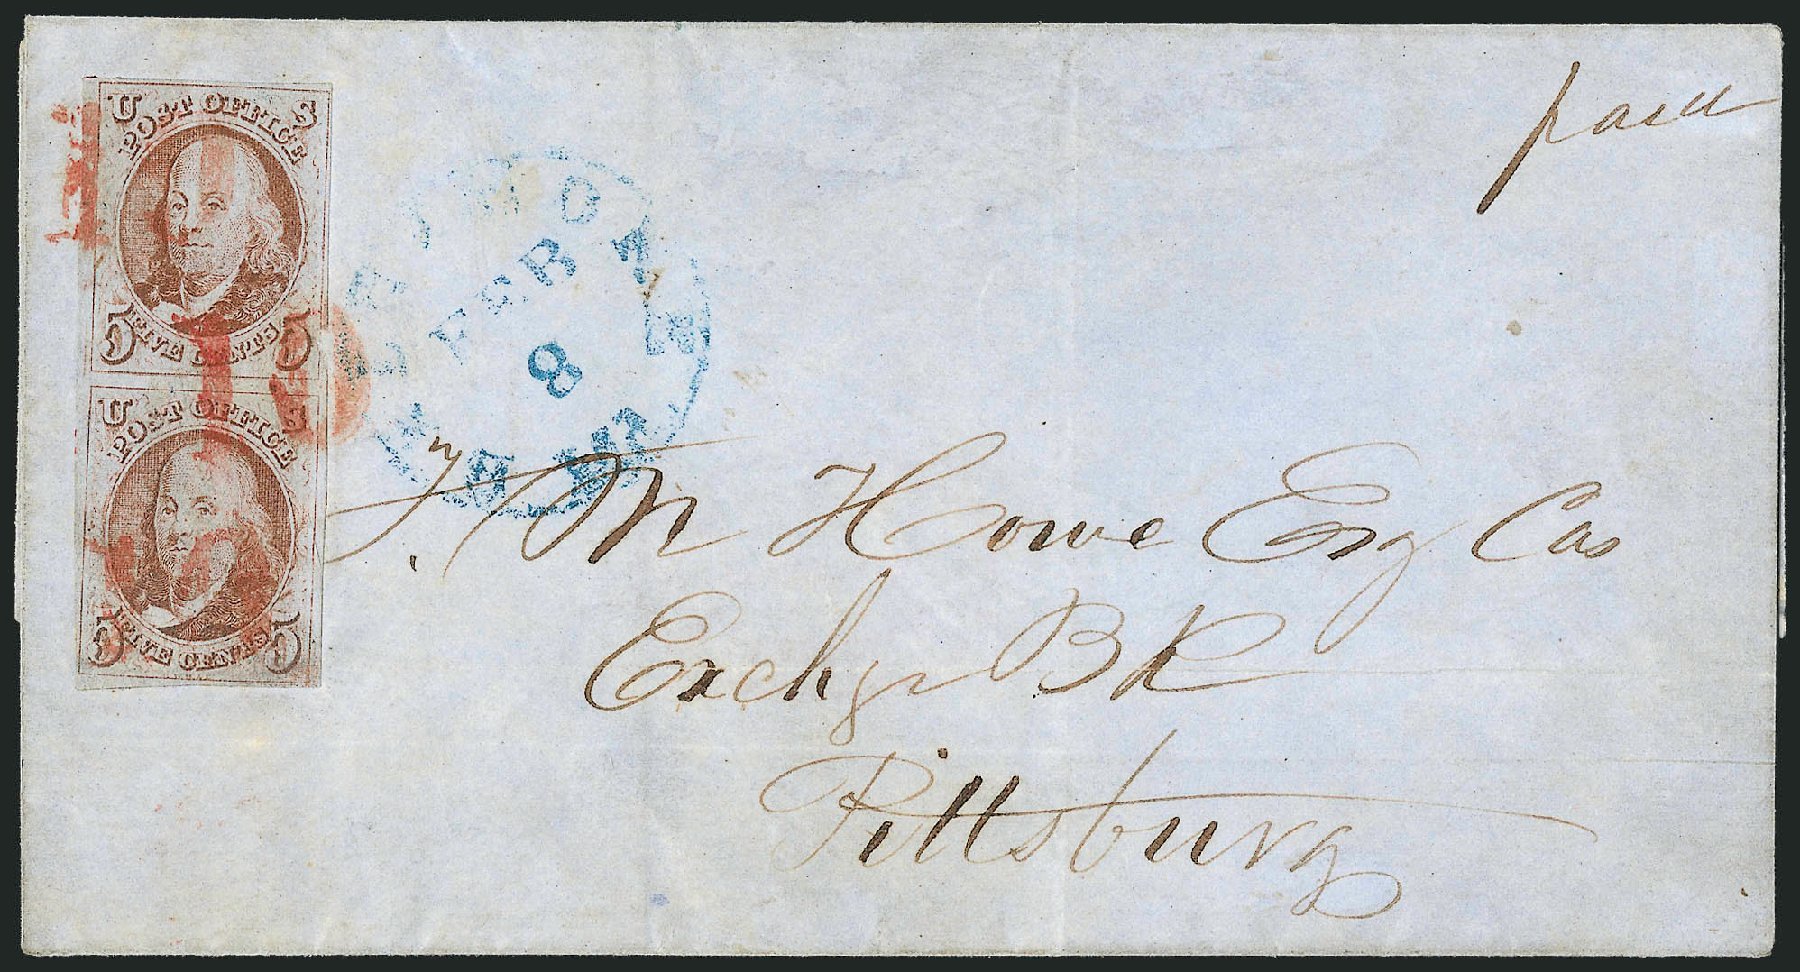 paid
U S
POST OFFICE
5 FIVE CENTS 5
U S
POST OFFICE
5 FIVE CENTS 5
BALTIMORE Md
FEB
8
T. M Howe Esq Cas
Exchge Bk
Pittsburg